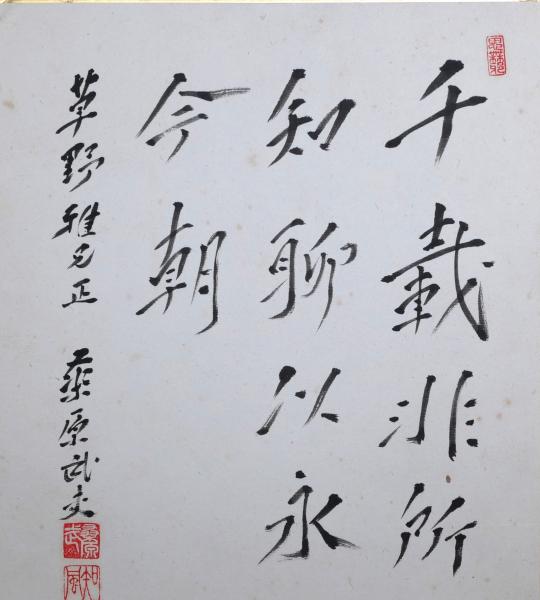 千載非所
知聊以永
今朝
草野雅兄正 桑原武夫